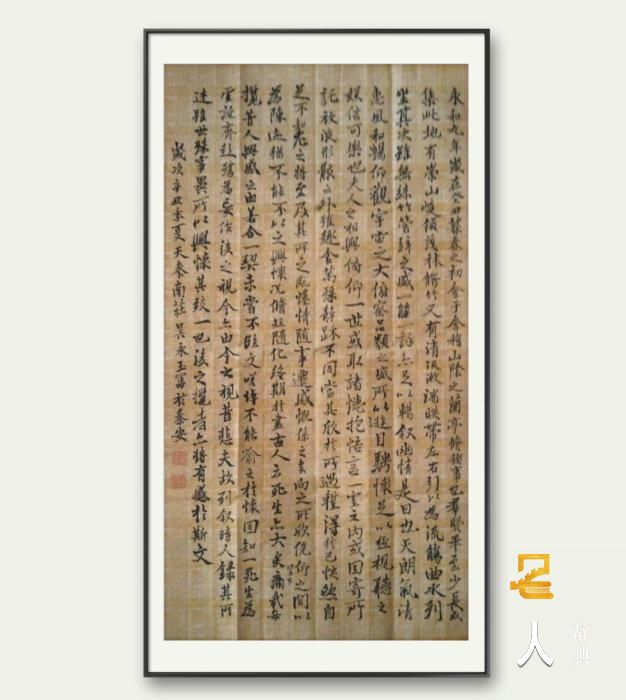 永和九年歲在癸丑暮春之初會于會稽山陰之蘭亭脩稧事也羣賢畢至少長咸
集此地有崇山峻領茂林脩竹又有清流激湍暎帶左右引以為流觴曲水列
坐其次雖無絲竹管弦之盛一觴一詠亦足以暢叙幽情是日也天朗氣清
惠風和暢仰觀宇宙之大俯察品類之盛所以遊目騁懷足以極視聽之
娛信可樂也夫人之相與俯仰一世或取諸懷抱悟言一室之內或因寄所
託放浪形骸之外雖趣舍萬殊靜躁不同當其欣於所遇蹔得於己快然自
足不知老之將至及其所之既惓情隨事遷感慨係之矣向之所欣俛仰之間以
為陳迹猶不能不以之興懷況脩短隨化終期於盡古人云死生亦大矣豈不痛哉每
攬昔人興感之由若合一契未嘗不臨文嗟悼不能喻之於懷固知一死生為
虛誕齊彭殤為妄作後之視今亦由今之視昔悲夫故列叙時人錄其所
述雖世殊事異所以興懷其致一也後之攬者亦將有感於斯文
歲次辛丑季夏天泰南莊吳永玉寫於泰安
人
辞典